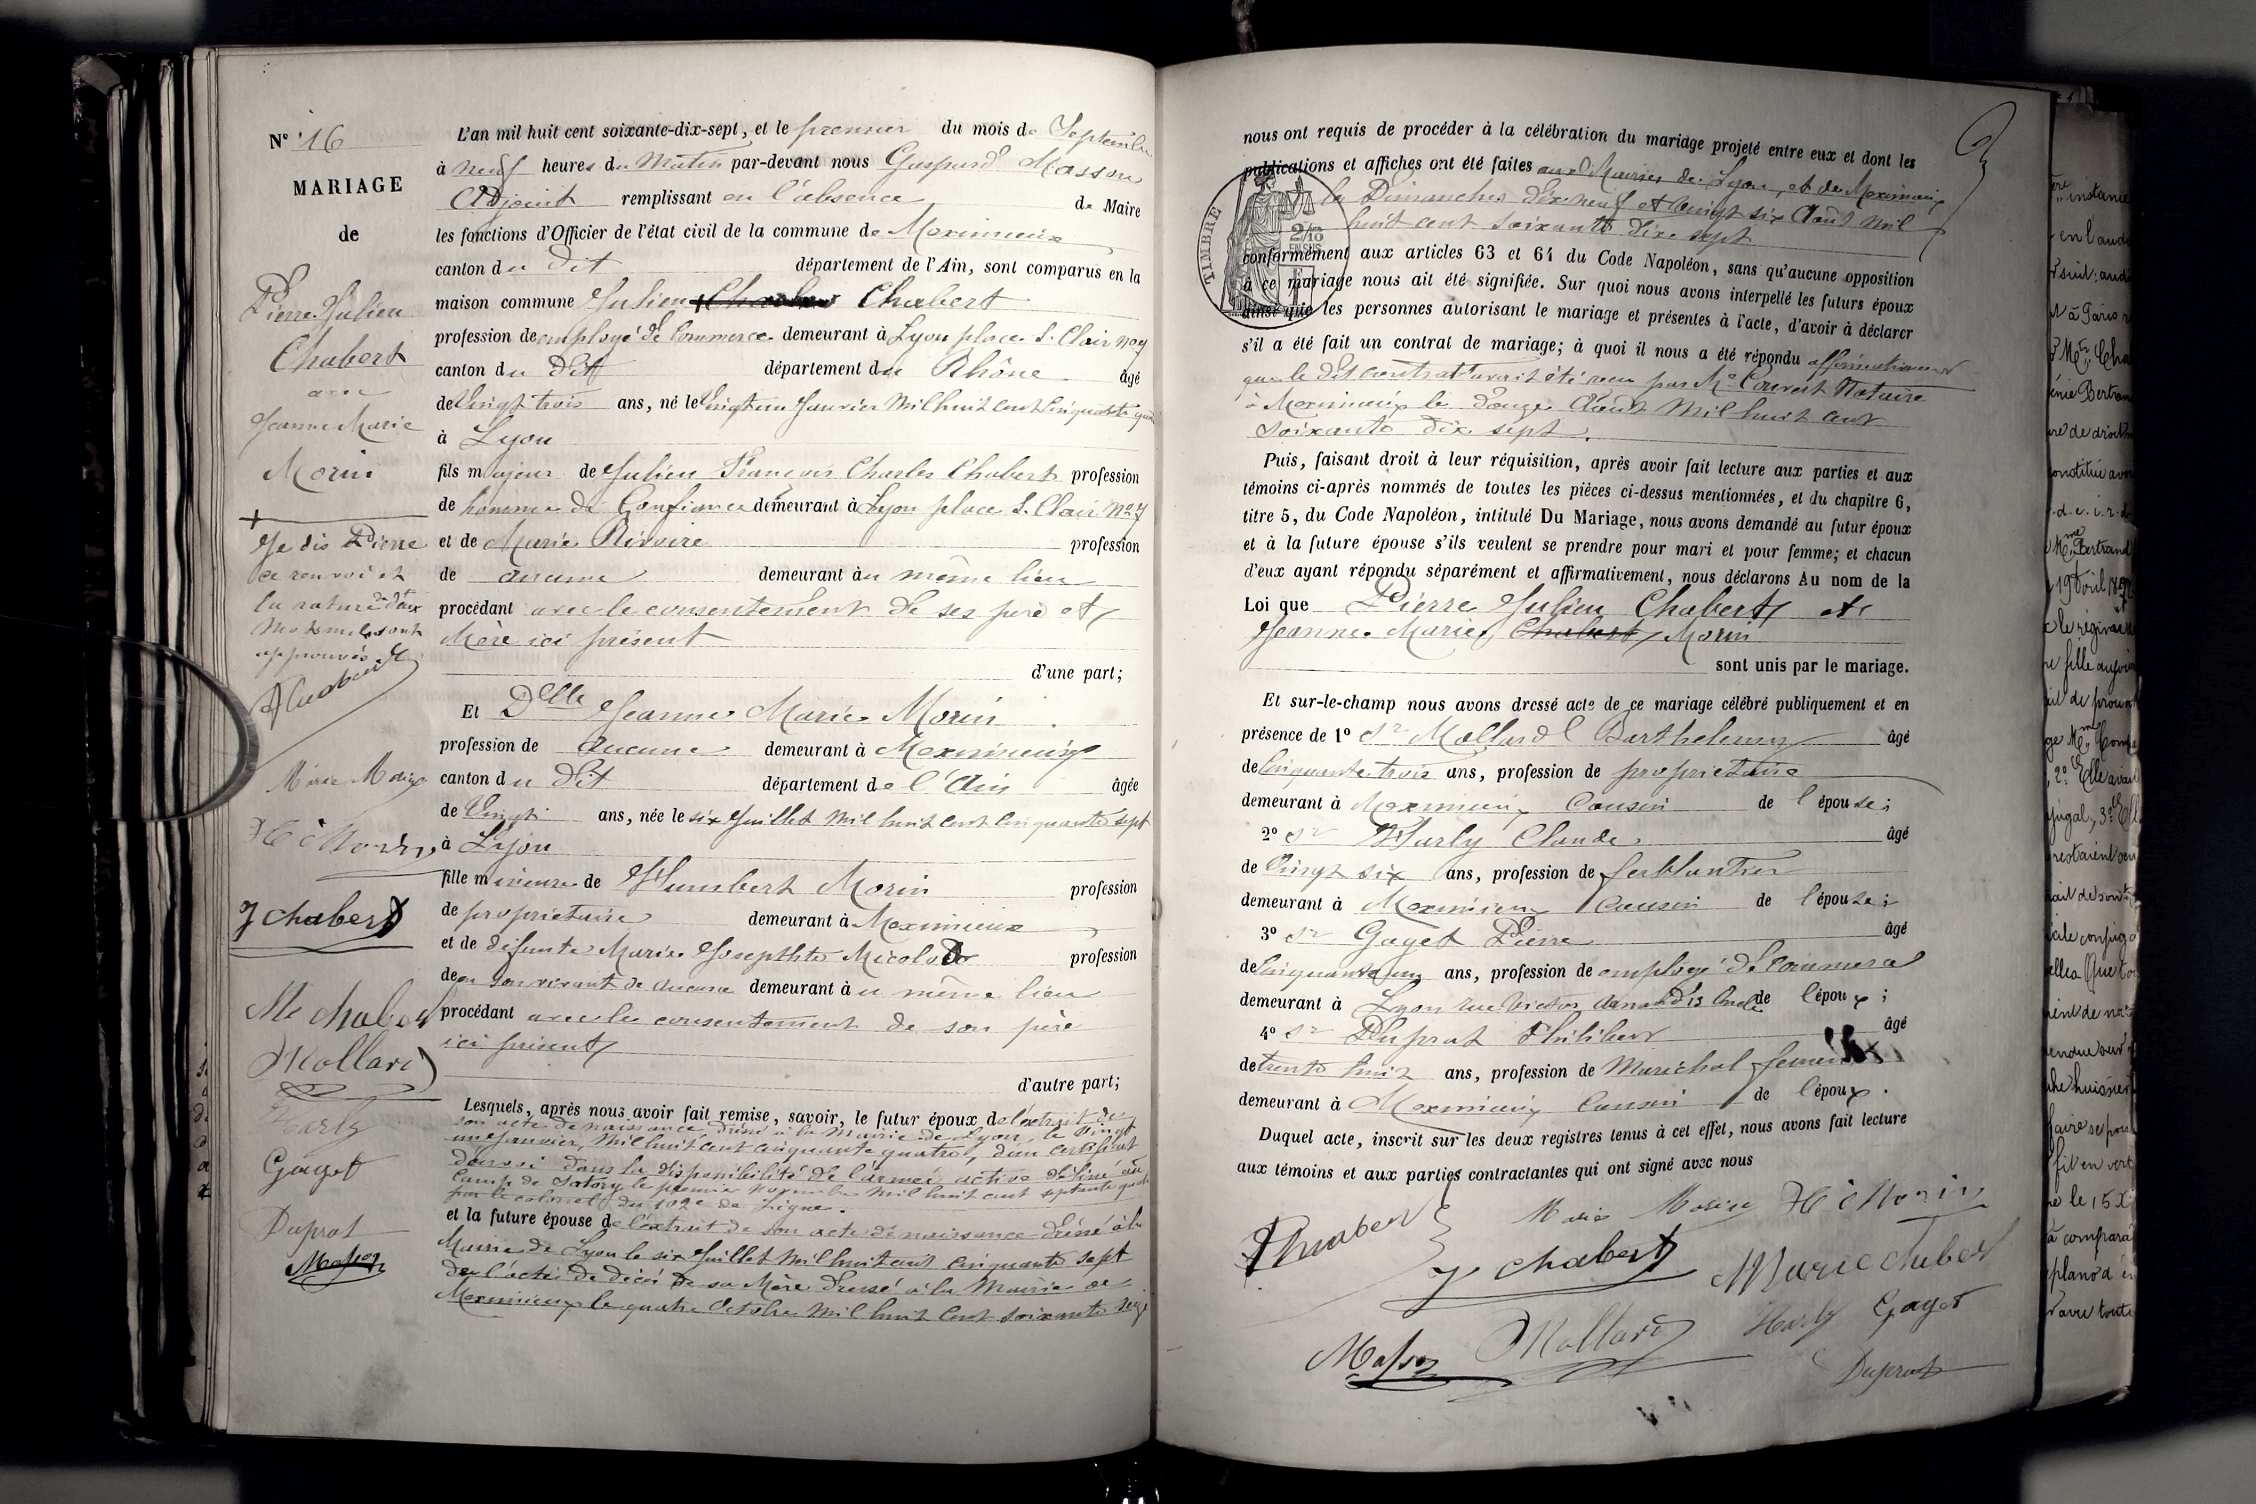 N° 16
MARIAGE
de
Pierre Julien
Chabert
avec
Jeanne Marie
Morin
Je dis Pierre
ce renvoi et
la rature de deux
mots nuls sont
approuvés
Marie Morin
J Chabert
Mollard
Harly
Gayet
Duprat
Masson
L'an mil huit cent soixante-dix-sept, et le premier du mois de Septembre
à neuf heures du Matin par-devant nous Gaspard Masson
Adjoint remplissant en l'absence de Maire
les fonctions d'Officier de l'état civil de la commune de Meximieux
canton du dit département de l'Ain, sont comparus en la
maison commune Julien Charles Chabert
profession de employé de Commerce demeurant à Lyon place St Clair No 7
canton du dit département du Rhône âgé
de Vingt trois ans, né le Vingt un Janvier Mil huit cent Cinquante quatre
à Lyon
fils majeur de Julien François Charles Chabert profession
de homme de Confiance demeurant à Lyon place St Clair No 7
et de Marie Rivoire profession
de aucune demeurant au même lieu
procédant avec le consentement de ses père et
Mère ici présent
d'une part;
Et Delle Jeanne Marie Morin
profession de aucune demeurant à Meximieux
canton du dit département de l'Ain âgée
de Vingt ans, née le six Juillet Mil huit cent Cinquante sept
à Lyon
fille mineure de Humbert Morin profession
de propriétaire demeurant à Meximieux
et de défunte Marie Josephte profession
de en son vivant de aucune demeurant au même lieu
procédant avec le consentement de son père
ici présent
d'autre part;
Lesquels, après nous avoir fait remise, savoir, le futur époux de l'extrait de
son acte de naissance dréssé à la Mairie de Lyon, le Vingt
un Janvier, Mil huit cent cinquante quatre, d'un certificat
dans la disponibilité de l'armée active délivré au
Camp de Satory le premier Novembre Mil huit cent septante quatre
par le colonel du 102e de Ligne.
et la future épouse de l'extrait de son acte de naissance dréssé à la
Mairie de Lyon le six Juillet Mil huit cent Cinquante sept
de l'acte de décès de sa Mère dressé à la Mairie de
Meximieux le quatre Octobre Mil huit Cent soixante seize
nous ont requis de procéder à la célébration du mariage projeté entre eux et dont les
publications et affiches ont été faites aux Mairies de Lyon, et de Meximieux
les Dimanches dix neuf et Vingt six Août Mil
huit cent soixante dix sept
TIMBRE
2/10
EN SUS
conformément aux articles 63 et 64 du Code Napoléon, sans qu'aucune opposition
à ce mariage nous ait été signifiée. Sur quoi nous avons interpellé les futurs époux
ainsi que les personnes autorisant le mariage et présentes à l'acte, d'avoir à déclarer
s'il a été fait un contrat de mariage; à quoi il nous a été répondu affirmativement
que le dit contrat avait été reçu par Me Couvert Notaire
à Meximieux le Août Mil huit cent
soixante dix sept.
Puis, faisant droit à leur réquisition, après avoir fait lecture aux parties et aux
témoins ci-après nommés de toutes les pièces ci-dessus mentionnées, et du chapitre 6,
titre 5, du Code Napoléon, intitulé Du Mariage, nous avons demandé au futur époux
et à la future épouse s'ils veulent se prendre pour mari et pour femme; et chacun
d'eux ayant répondu séparément et affirmativement, nous déclarons Au nom de la
Loi que Pierre Julien Chabert et
Jeanne Marie Chabert Morin
sont unis par le mariage.
Et sur-le-champ nous avons dressé acte de ce mariage célébré publiquement et en
présence de 1° Sr Mollard Barthelemy âgé
de Cinquante trois ans, profession de propriétaire
demeurant à Meximieux Cousin de l'épouse;
2° Sr Harly Claude âgé
de Vingt six ans, profession de ferblantier
demeurant à Meximieux Cousin de l'épouse;
3° Sr Gayet Pierre âgé
de Cinquante un ans, profession de employé de Commerce
demeurant à Lyon rue Victor Arnaud 13 Oncle de l'époux;
4° Sr Duprat Philibert âgé
de trente huit ans, profession de Maréchal ferrant
demeurant à Meximieux Cousin de l'époux.
Duquel acte, inscrit sur les deux registres tenus à cet effet, nous avons fait lecture
aux témoins et aux parties contractantes qui ont signé avec nous
Marie Morin
J Chabert
Masson
Mollard
Harly
Gayet
Duprat